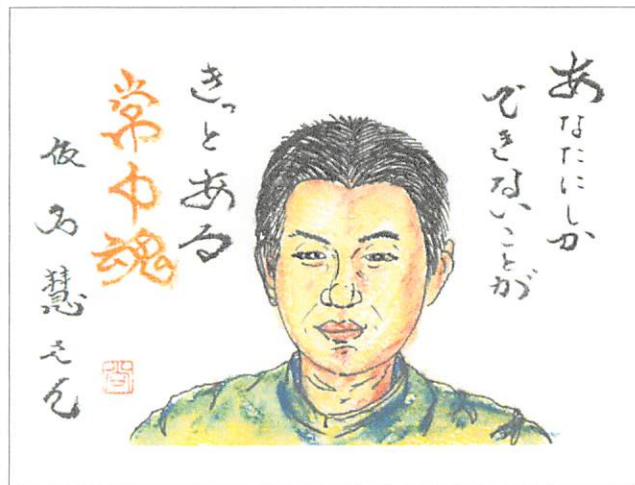 あなたにしか
できないことが
きっとある
常中魂
慧さん